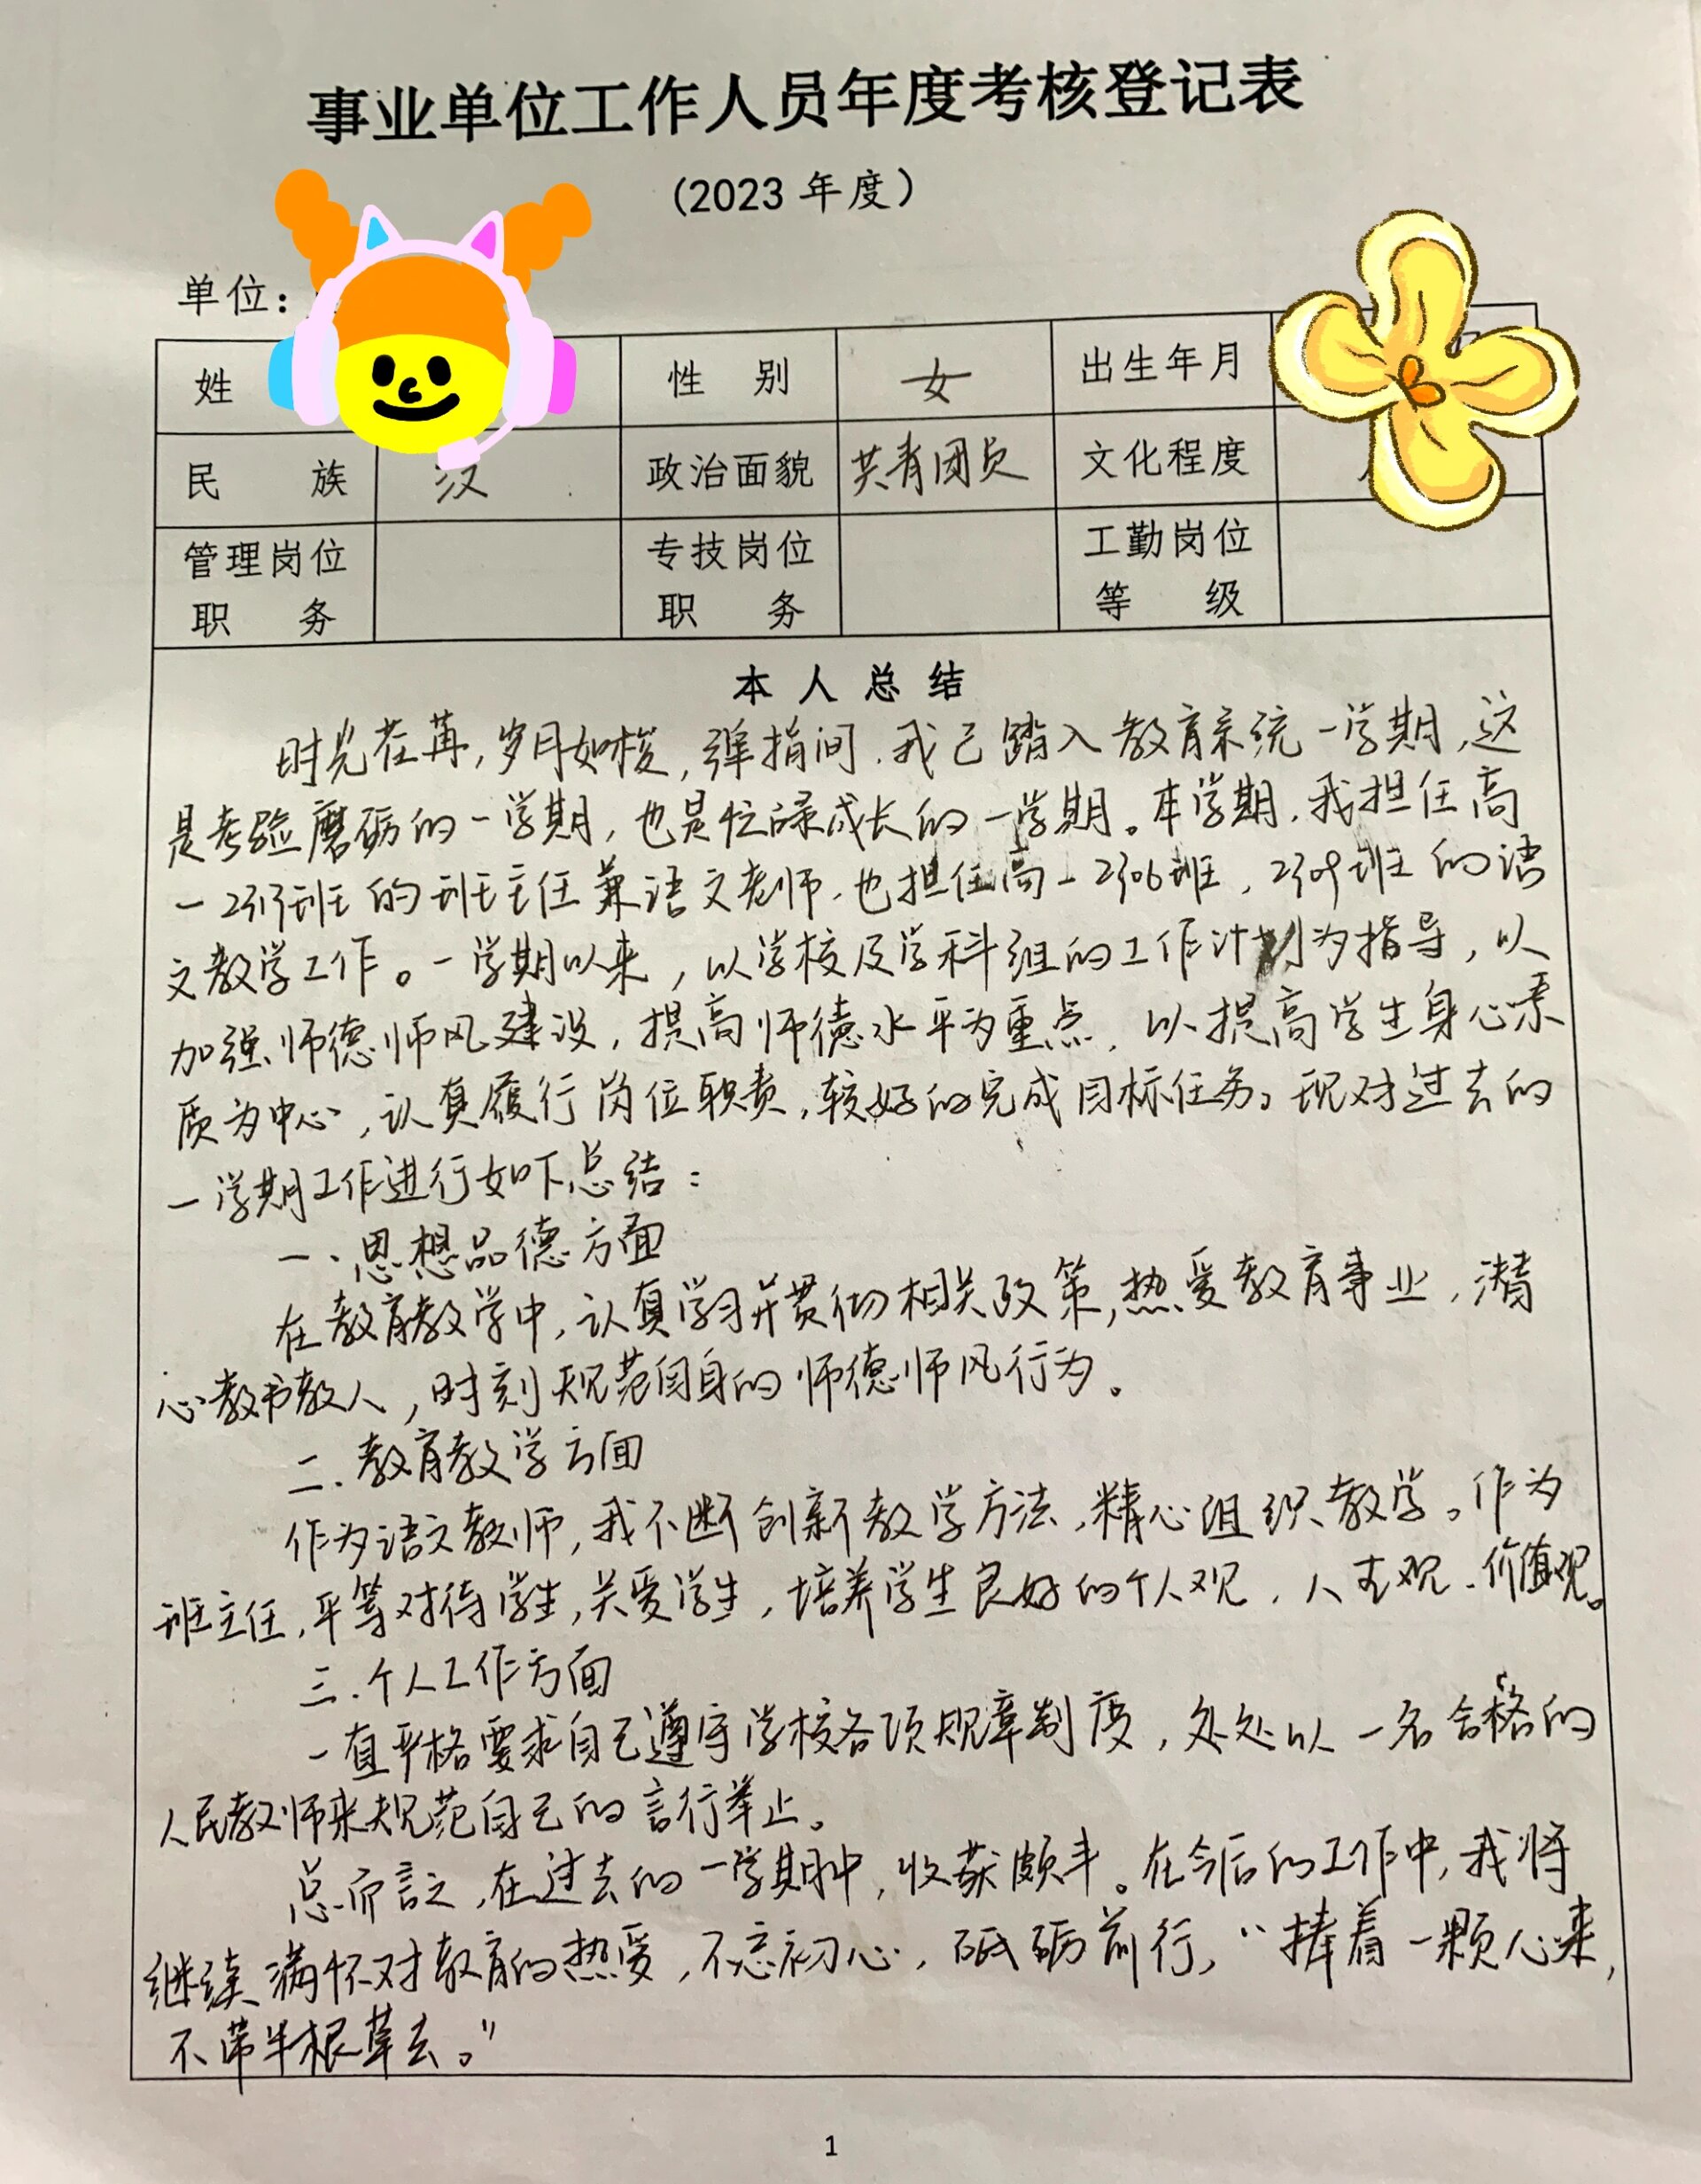 事业单位工作人员年度考核登记表
(2023 年度)
单位:
姓 性 别 女 出生年月
民 族 汉 政治面貌 共青团员 文化程度
管理岗位职 务 专技岗位职 务 工勤岗位等 级
本 人 总 结
时光荏苒,岁月如梭,弹指间,我已踏入教育系统一学期,这
是考验磨砺的一学期,也是忙碌成长的一学期。本学期,我担任高
一2313班的班主任兼语文老师,也担任高一2306班,2309班的语
文教学工作。一学期以来,以学校及学科组的工作计划为指导,以
加强师德师风建设,提高师德水平为重点,以提高学生身心素
质为中心,认真履行岗位职责,较好的完成目标任务。现对过去的
一学期工作进行如下总结:
一、思想品德方面
在教育教学中,认真学习并贯彻相关政策,热爱教育事业,潜
心教书教人,时刻规范自身的师德师风行为。
二、教育教学方面
作为语文教师,我不断创新教学方法,精心组织教学。作为
班主任,平等对待学生,关爱学生,培养学生良好的个人观,人生观、价值观。
三、个人工作方面
一直严格要求自己遵守学校各项规章制度,处处以一名合格的
人民教师来规范自己的言行举止。
总而言之,在过去的一学期中,收获颇丰。在今后的工作中,我将
继续满怀对教育的热爱,不忘初心,砥砺前行,“捧着一颗心来,
不带半根草去。”
1